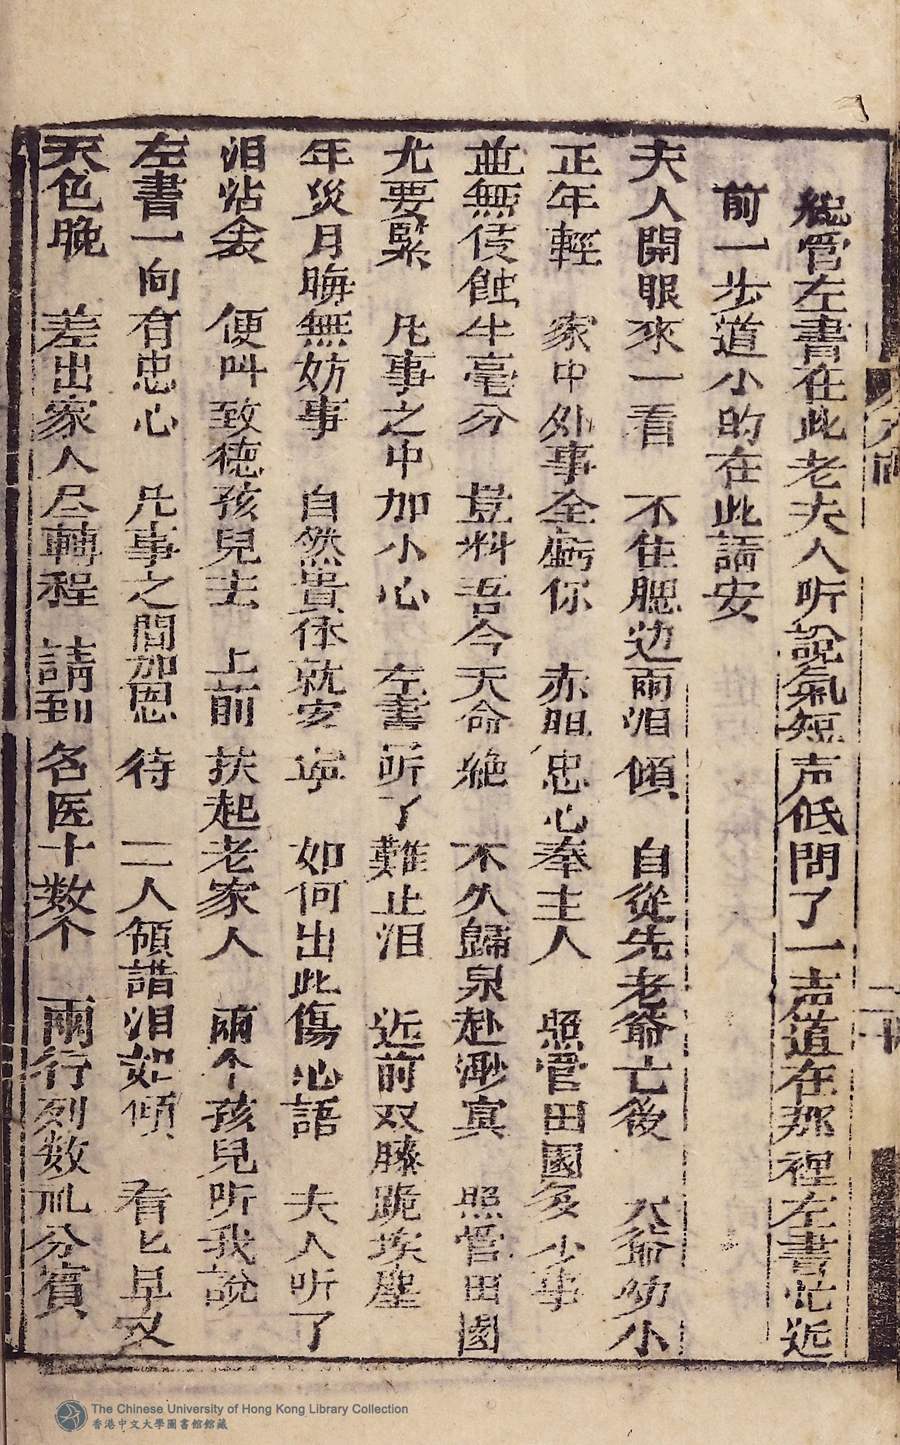 総管左書在此老夫人听說氣短声低問了一声道在那裡左書忙近
前一步道小的在此請安
夫人開眼來一看　不住腮边兩泪傾　自從先老爺亡後　大爺幼小
正年輕　家中外事全虧你　赤胆忠心奉主人　照管田園多少事
並無侵蝕半毫分　豈料吾今天命絶　不久歸泉赴渺冥　照管田園
尤要緊　凡事之中加小心　左書听了難止泪　近前双膝跪埃塵
年災月晦無妨事　自然貴体就安寧　如何出此傷心語　夫人听了
泪沾衾　便叫致德孩兒去　上前扶起老家人　兩个孩兒听我說
左書一向有忠心　凡事之間加恩待　二人領諾泪如傾　看匕早又
天色晚　差出家人尽轉程　請到名医十数个　兩行列数乱分賓
二十
The Chinese University of Hong Kong Library Collection
香港中文大學圖書館館藏